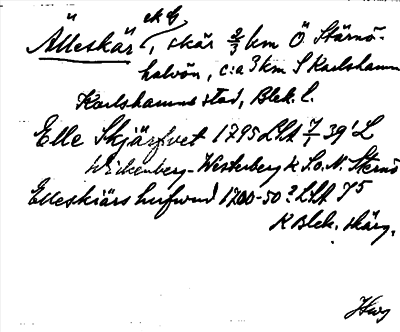 ek G
Älleskär, skär 2/3 km Ö Stärnö-
halvön, c:a 3 km S Karlshamn
Karlshamns stad, Blek. l.
Elle Skjärfvet 1795 LSA 7/- 39' L
Wickenberg-Westerberg k S.o.N. Sternö
Elleskiärs hufwud 1700-50? LSA 75
K Blek. skärg.